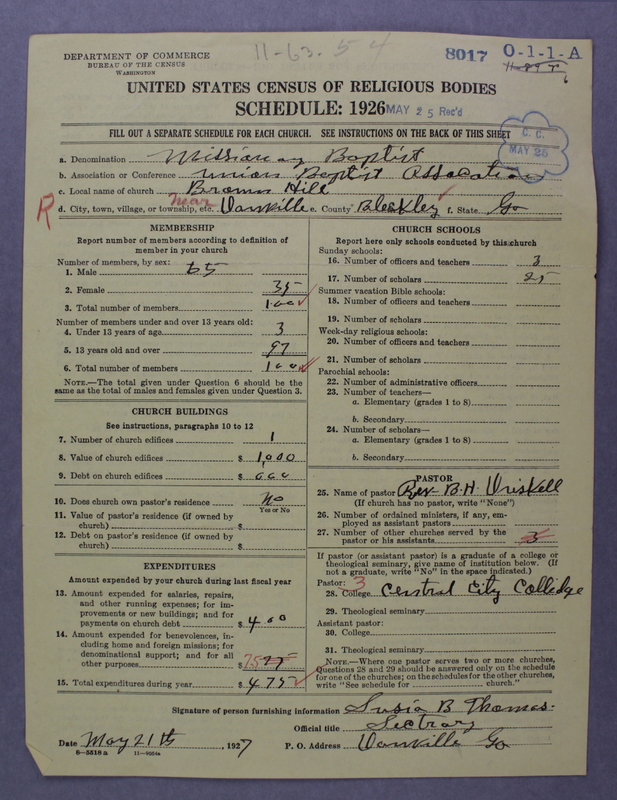 DEPARTMENT OF COMMERCE
BUREAU OF THE CENSUS
WASHINGTON
11-63. 5 4
8017 O-1-1-A
UNITED STATES CENSUS OF RELIGIOUS BODIES
SCHEDULE: 1926
MAY 25 Rec'd
FILL OUT A SEPARATE SCHEDULE FOR EACH CHURCH. SEE INSTRUCTIONS ON THE BACK OF THIS SHEET
C. C.
MAY 26
a. Denomination Missionary Baptist
b. Association or Conference Union Baptist Assocation
c. Local name of church Brown Hill
R d. City, town, village, or township, etc. near Danville e. County Bleckley f. State Ga
MEMBERSHIP
Report number of members according to definition of member in your church
Number of members, by sex:
1. Male 65
2. Female 35
3. Total number of members 100
Number of members under and over 13 years old:
4. Under 13 years of age 3
5. 13 years old and over 97
6. Total number of members 100
NOTE.—The total given under Question 6 should be the same as the total of males and females given under Question 3.
CHURCH BUILDINGS
See instructions, paragraphs 10 to 12
7. Number of church edifices 1
8. Value of church edifices $ 1,000
9. Debt on church edifices $ 000
10. Does church own pastor's residence No
Yes or No
11. Value of pastor's residence (if owned by church) $
12. Debt on pastor's residence (if owned by church) $
EXPENDITURES
Amount expended by your church during last fiscal year
13. Amount expended for salaries, repairs, and other running expenses; for improvements or new buildings; and for payments on church debt $ 400
14. Amount expended for benevolences, including home and foreign missions; for denominational support; and for all other purposes $ 75
15. Total expenditures during year $ 475
CHURCH SCHOOLS
Report here only schools conducted by this church
Sunday schools:
16. Number of officers and teachers 3
17. Number of scholars 25
Summer vacation Bible schools:
18. Number of officers and teachers
19. Number of scholars
Week-day religious schools:
20. Number of officers and teachers
21. Number of scholars
Parochial schools:
22. Number of administrative officers
23. Number of teachers—
a. Elementary (grades 1 to 8)
b. Secondary
24. Number of scholars—
a. Elementary (grades 1 to 8)
b. Secondary
PASTOR
25. Name of pastor Rev. B. H. Driskell
(If church has no pastor, write "None")
26. Number of ordained ministers, if any, employed as assistant pastors
27. Number of other churches served by the pastor or his assistants 3
If pastor (or assistant pastor) is a graduate of a college or theological seminary, give name of institution below. (If not a graduate, write "No" in the space indicated.)
Pastor: 3
28. College Central City Colledge
29. Theological seminary
Assistant pastor:
30. College
31. Theological seminary
NOTE.—Where one pastor serves two or more churches, Questions 28 and 29 should be answered only on the schedule for one of the churches; on the schedules for the other churches, write "See schedule for church."
Signature of person furnishing information Susia B Thomas.
Official title Sectrary
Date May 21th, 1927 P. O. Address Danville Ga
6—5518 a